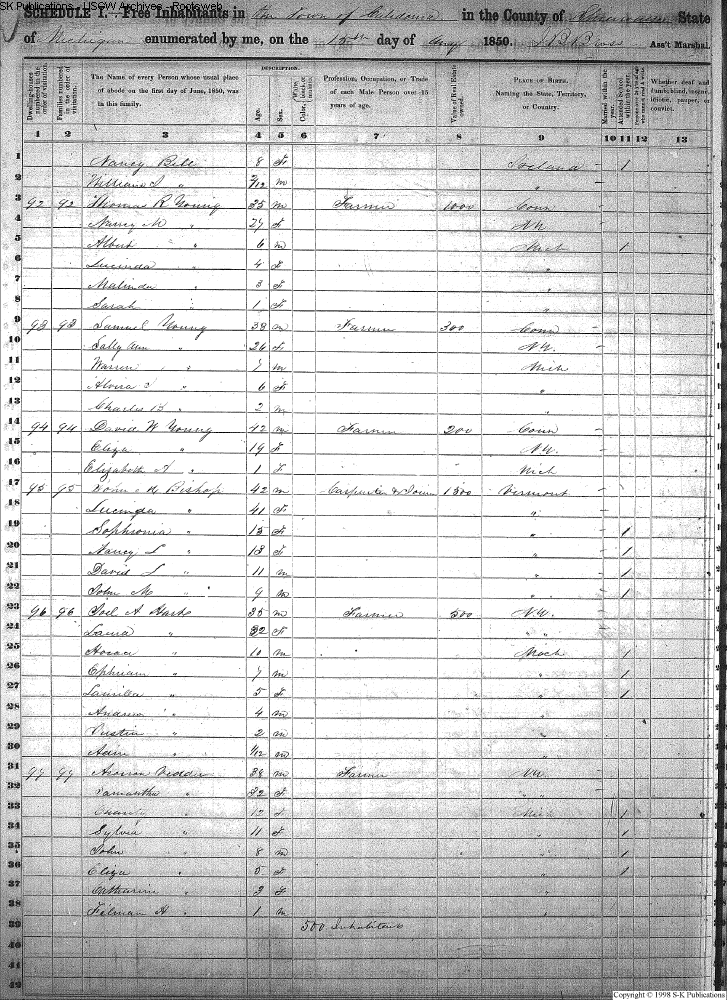 SK Publications - USGW Archives - Rootsweb
SCHEDULE I.-Free Inhabitants in the Town of Caledonia in the County of Shiawassee State
of Michigan enumerated by me, on the 15th day of Aug 1850. Ass't Marshal.
DESCRIPTION.
Dwelling-houses numbered in the order of visitation. Families numbered in the order of visitation. The Name of every Person whose usual place of abode on the first day of June, 1850, was in this family. Age. Sex. Color, Profession, Occupation, or Trade of each Male Person over 15 years of age. Value of Real Estate owned. PLACE OF BIRTH. Naming the State, Territory, or Country. Married within the year. Attended School within the year. Whether deaf and dumb, blind, insane, idiotic, pauper, or convict.
1 2 3 4 5 6 7 8 9 10 11 12 13
1 Nancy Bell 8 F Ireland 1
2 William S " /12 m "
3 92 92 Thomas R Young 35 m Farmer 1000 Conn
4 Nancy M " 27 F NY
5 Albert " 6 m Mich 1
6 Lucinda " 4 F "
7 Malinda " 3 F "
8 Sarah " 1 F "
9 93 93 Samuel Young 38 m Farmer 300 Conn
10 Sally Ann " 26 F NY.
11 Warren " 7 m Mich
12 Alvira " 6 F "
13 Charles B " 2 m "
14 94 94 David W Young 42 m Farmer 200 Conn
15 Eliza " 19 F NY
16 Elizabeth A " 1 F Mich
17 95 95 John M Bishop 42 m Carpenter & Joiner 1500 Vermont
18 Lucinda " 41 F "
19 Sophronia " 15 F " 1
20 Nancy L " 13 F " 1
21 David S " 11 m " 1
22 John M " 9 m " 1
23 96 96 Joel A 35 m Farmer 500 NY.
24 Laura " 32 F "
25 Horace " 10 m Mich 1
26 Ephriam " 7 m " 1
27 " 5 F " 1
28 Andrew " 4 m "
29 " 2 m "
30 " /12 m "
31 97 97 Vedder 38 m Farmer NY
32 Samantha " 32 F "
33 " 12 F Mich 1
34 Sylvia " 11 F " 1
35 John " 8 m " 1
36 Eliza " 5 F " 1
37 Catharine " 3 F "
38 A " 1 m "
39 500 Inhabitants
40
41
42
Copyright © 1998 S-K Publications